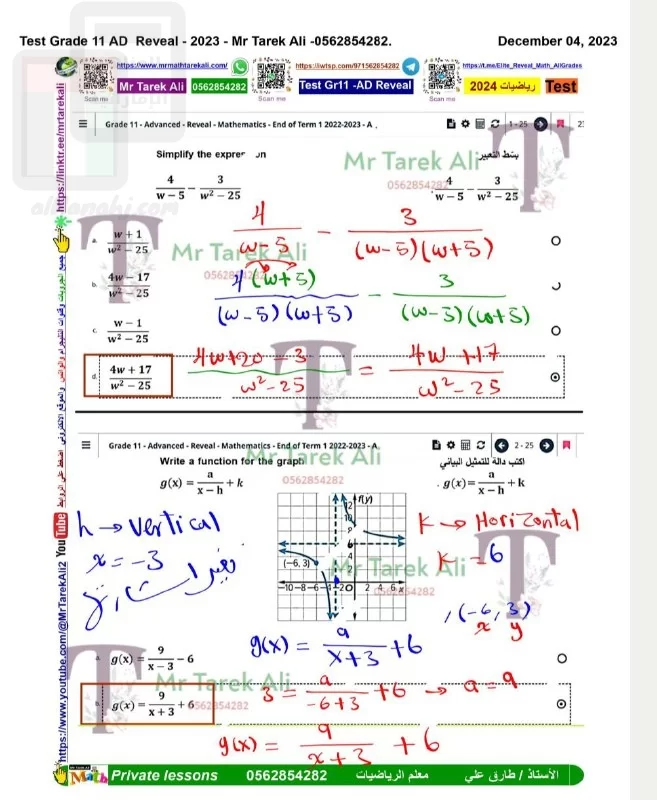 Test Grade 11 AD Reveal - 2023 - Mr Tarek Ali -0562854282. December 04, 2023
https://www.mrmathtarekali.com/ https://iwtsp.com/971562854282 https://t.me/Elite_Reveal_Math_AllGrades
Mr Tarek Ali 0562854282 Test Gr11 -AD Reveal رياضيات 2024 Test
Scan me Scan me Scan me
Grade 11 - Advanced - Reveal - Mathematics - End of Term 1 2022-2023 - A 1 - 25
Simplify the expression بسّط التعبير
Mr Tarek Ali
0562854282
4/(w − 5) − 3/(w² − 25) 4/(w − 5) − 3/(w² − 25)
4/(w−5) − 3/((w−5)(w+5))
a. (w + 1)/(w² − 25)
Mr Tarek Ali
0562854282
b. (4w − 17)/(w² − 25)
4(w+5)/((w−5)(w+5)) − 3/((w−5)(w+5))
c. (w − 1)/(w² − 25)
d. (4w + 17)/(w² − 25)
(4w+20−3)/(w²−25) = (4w+17)/(w²−25)
Grade 11 - Advanced - Reveal - Mathematics - End of Term 1 2022-2023 - A 2 - 25
Write a function for the graph اكتب دالة للتمثيل البياني
Mr Tarek Ali
0562854282
g(x) = a/(x − h) + k . g(x) = a/(x − h) + k
h → vertical
x = −3
K → Horizontal
K = 6
f(y)
(−6, 3)
−10 −8 −6 −2 O 2 4 6 x
Mr Tarek Ali
(−6, 3)
x y
g(x) = a/(x+3) + 6
a. g(x) = 9/(x − 3) − 6
Mr Tarek Ali
0562854282
3 = a/(−6+3) + 6 → a = 9
b. g(x) = 9/(x + 3) + 6
g(x) = 9/(x+3) + 6
Math Private lessons 0562854282 معلم الرياضيات الأستاذ / طارق علي
https://linktr.ee/mrtarekali
https://www.youtube.com/@MrTarekAli2 YouTube
almanahj.com